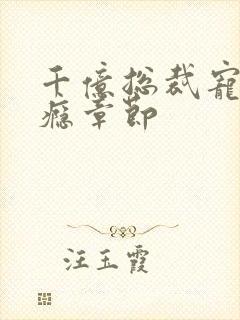 千億总裁寵
癮章節
汪玉霞